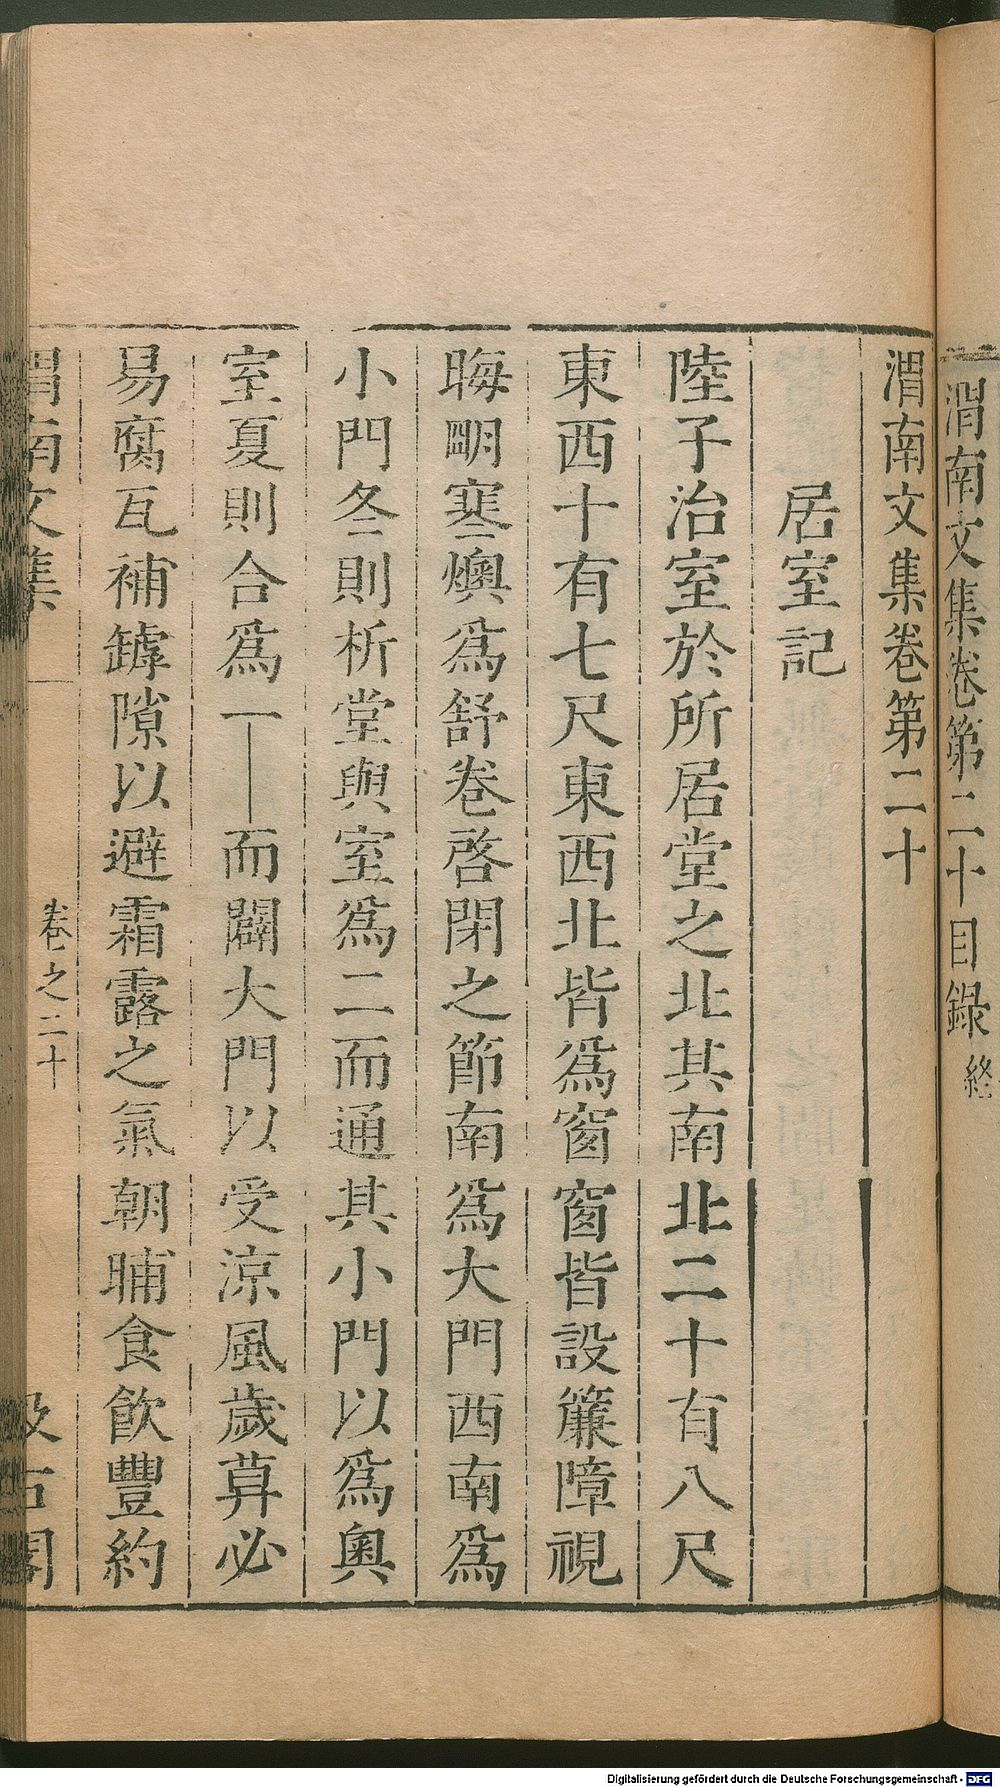 渭南文集卷第二十目錄終
渭南文集卷第二十
居室記
陸子治室於所居堂之北其南北二十有八尺
東西十有七尺東西北皆爲窗窗皆設簾障視
晦明寒燠爲舒卷啓閉之節南爲大門西南爲
小門冬則析堂與室爲二而通其小門以爲奧
室夏則合爲一而闢大門以受涼風歲暮必
易腐瓦補罅隙以避霜露之氣朝晡食飲豐約
渭南文集 卷之二十 汲古閣
Digitalisierung gefördert durch die Deutsche Forschungsgemeinschaft - DFG